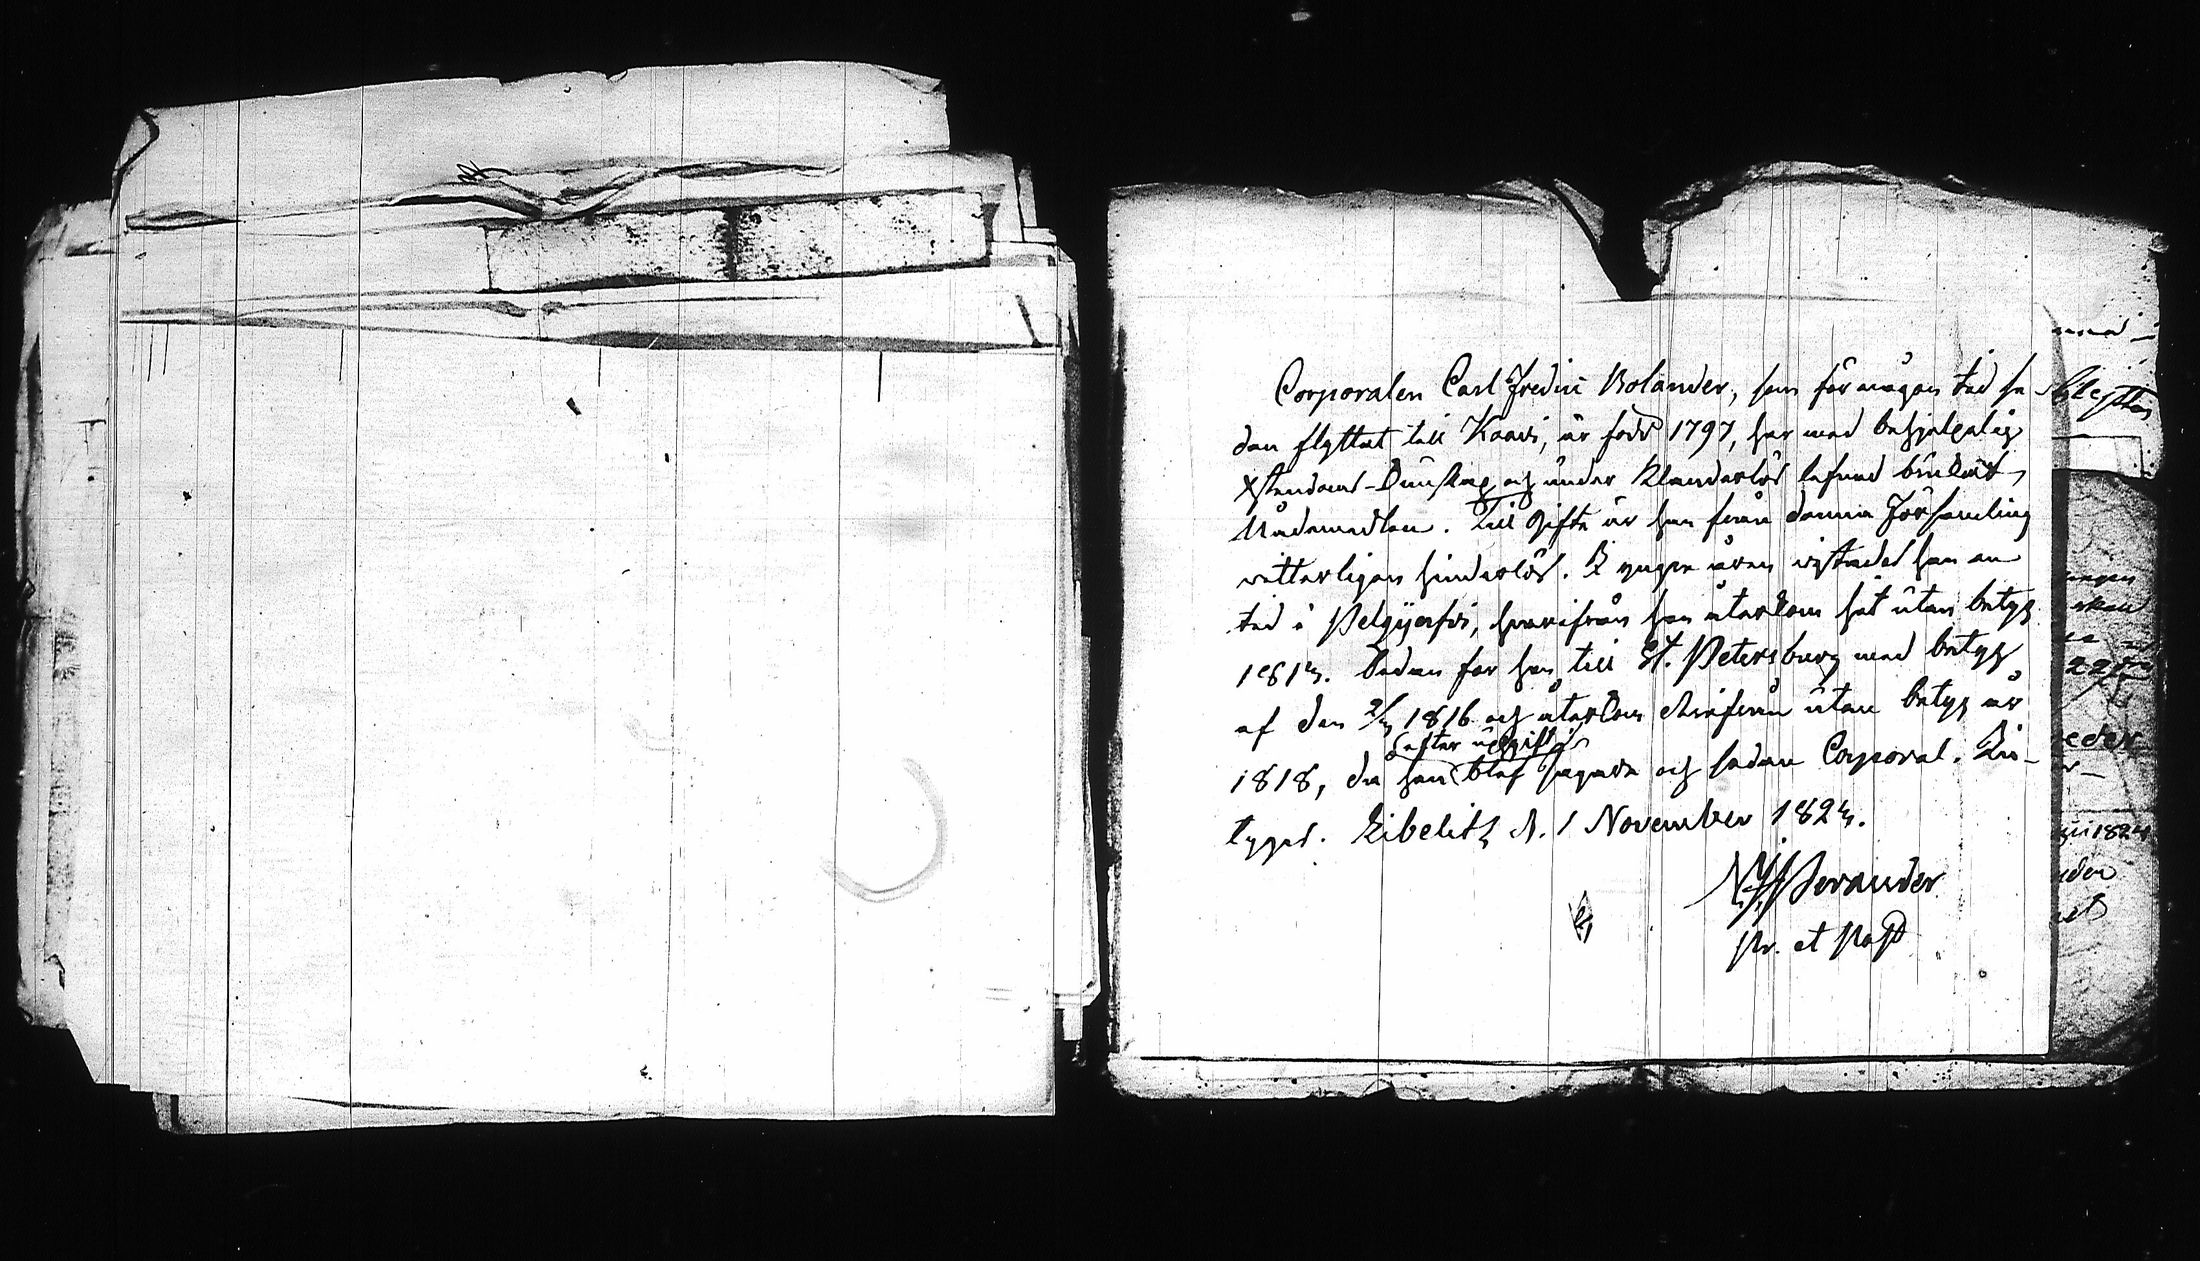 Corporalen Carl Fredric Bolander, som för någon tid se-
dan flyttat till Kaavi, är född 1797, har med behjelpelig
Xstendoms-Kunskap och under klanderlös lefnad brukat
Nådemedlen. Till Gifte är han från denna Församling
vetterligen hinderlös. I yngre åren vistades han en
tid i Pelgjerfvi, hvarifrån han återkom hit utan betyg
1814. Sedan for han till St. Petersburg med betyg
af den 1816 och återkom därifrån utan betyg år
efter uppgift
1818, då han blef Jägare och sedan Corporal. Be-
tygas. Libelitz d. 1 November 1824.
Perander
Pr. et Past
1824